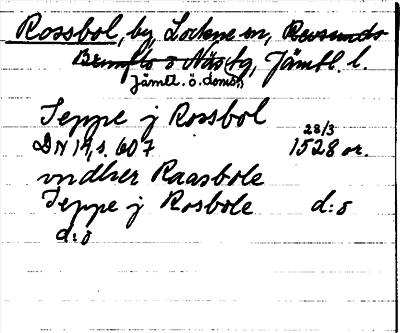 Rossbol, by, Lockne sn, Revsunds
Brunflo o Näs tg, Jämtl. l.
Jämtl. ö. doms.
Jeppe j Rossbol
DN 14, s. 607 28/3 1528 or.
vndher Raasbole
Jeppe j Rosbole d:o
d:o